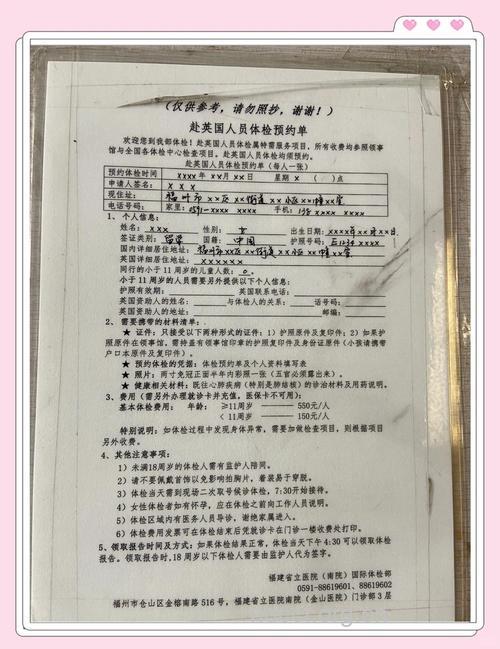 （仅供参考，请勿照抄，谢谢！）
赴英国人员体检预约单
欢迎您到我部体检！赴英国人员体检属特需服务项目，所有收费均参照领事
馆与全国各体检中心检查项目。赴英国人员体检均须预约。
赴英国人员体检预约单（每人一张）
预约体检时间 xxxx 年 xx 月 xx 日 星期 x （ ）点
申请人签名： x x x
现住址： 福州市 xx 区 xx 街道 xx 小区 xx 幢 xx 室
电话号码： 家里：0591-xxxx xxxx 手机：138 xxxx xxxx
1、个人信息：
姓名：xxx 性别：女 出生日期：xxxx年xx月xx日
签证类别：留学 国籍：中国 护照号码：
国内详细居住地址：福州市 xx 区 xx 街道 xx 小区 xx 幢 xx 室
英国详细居住地址：xxxxxx
同行的小于 11 周岁的儿童人数：0。
小于 11 周岁的人员需另外提供以下个人信息：
护照有效期： 英国联系电话：
英国资助人的姓名： 与体检人的关系： 话号码：
英国资助人的地址： 邮编：
2、需要携带的材料清单：
★ 证件：只接受以下两种形式的证件：1）护照原件及复印件；2）如果护
照原件在领事馆。需持盖有领事馆印章的护照复印件及身份证原件（小孩请携带
户口本原件及复印件）。
★ 预约体检的凭据：体检预约单及个人资料填写表
★ 照片：两寸免冠正面半年内彩照一张（五官必须露出来）。
★ 健康相关材料：既往心肺疾病（特别是肺结核）的诊治材料及用药说明。
3、费用（需另外办理就诊卡并充值，医保卡不可用）：
基本体检费用： 年龄： ≥11周岁 —— 550元/人
＜11周岁 —— 150元/人
特别说明：如体检过程中发现身体异常，需要加做检查项目，则根据项目
另外收费。
4、其他注意事项：
1）未满18周岁的体检人需有监护人陪同。
2）请不要佩戴首饰以免影响拍胸片，着装易于穿脱。
3）体检当天需到现场二次取号候诊体检，7:30开始接待。
4）女性体检者如有怀孕，应在体检之前向工作人员说明。
5）体检区域内有医务人员导诊，谢绝家属进入。
6）体检费用发票可在体检结束后凭就诊卡在门诊一楼收费处打印。
5、领取报告时间及方式：如果体检结果正常，体检当天下午 4:30 可以领体检
报告。领取报告时,18 周岁以下体检人需要由监护人代为签字。
福建省立医院（南院）国际体检部
0591-88619601、88619602
福州市仓山区金榕南路 516 号，福建省立医院南院（金山医院）门诊部 3 层